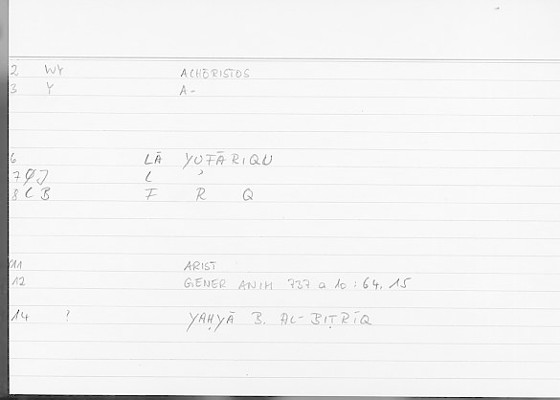 2 WY ACHŌRISTOS
3 Y A-
6 LĀ YUFĀRIQU
7 ∅J L ʾ
8 C B F R Q
11 ARIST
12 GENER ANIM 737 a 10 : 64, 15
14 ? YAḤYĀ B. AL-BIṬRĪQ